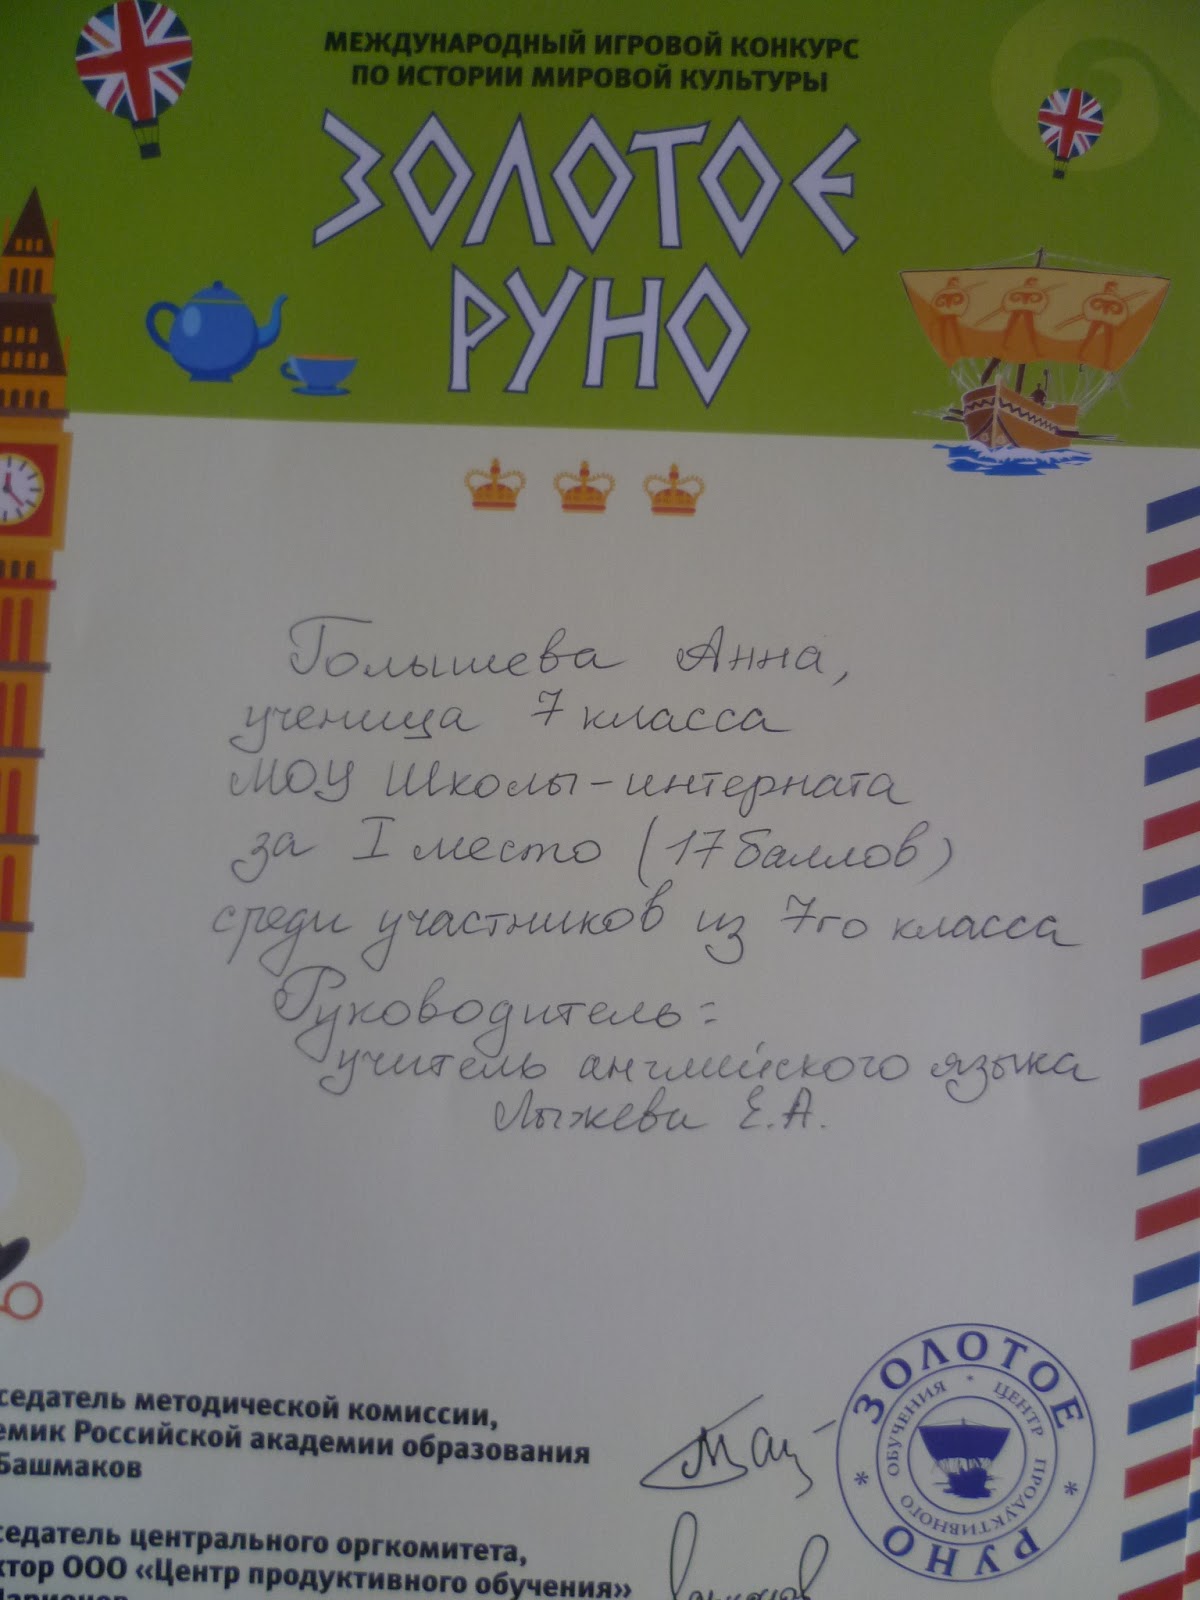 МЕЖДУНАРОДНЫЙ ИГРОВОЙ КОНКУРС
ПО ИСТОРИИ МИРОВОЙ КУЛЬТУРЫ
ЗОЛОТОЕ
РУНО
Голышева Анна,
ученица 7 класса
МОУ Школы-интерната
за I место (17 баллов)
среди участников из 7го класса
Руководитель:
учитель английского языка
Лыжева Е.А.
седатель методической комиссии,
емик Российской академии образования
Башмаков
седатель центрального оргкомитета,
ктор ООО «Центр продуктивного обучения»
ЗОЛОТОЕ РУНО
ЦЕНТР ПРОДУКТИВНОГО ОБУЧЕНИЯ